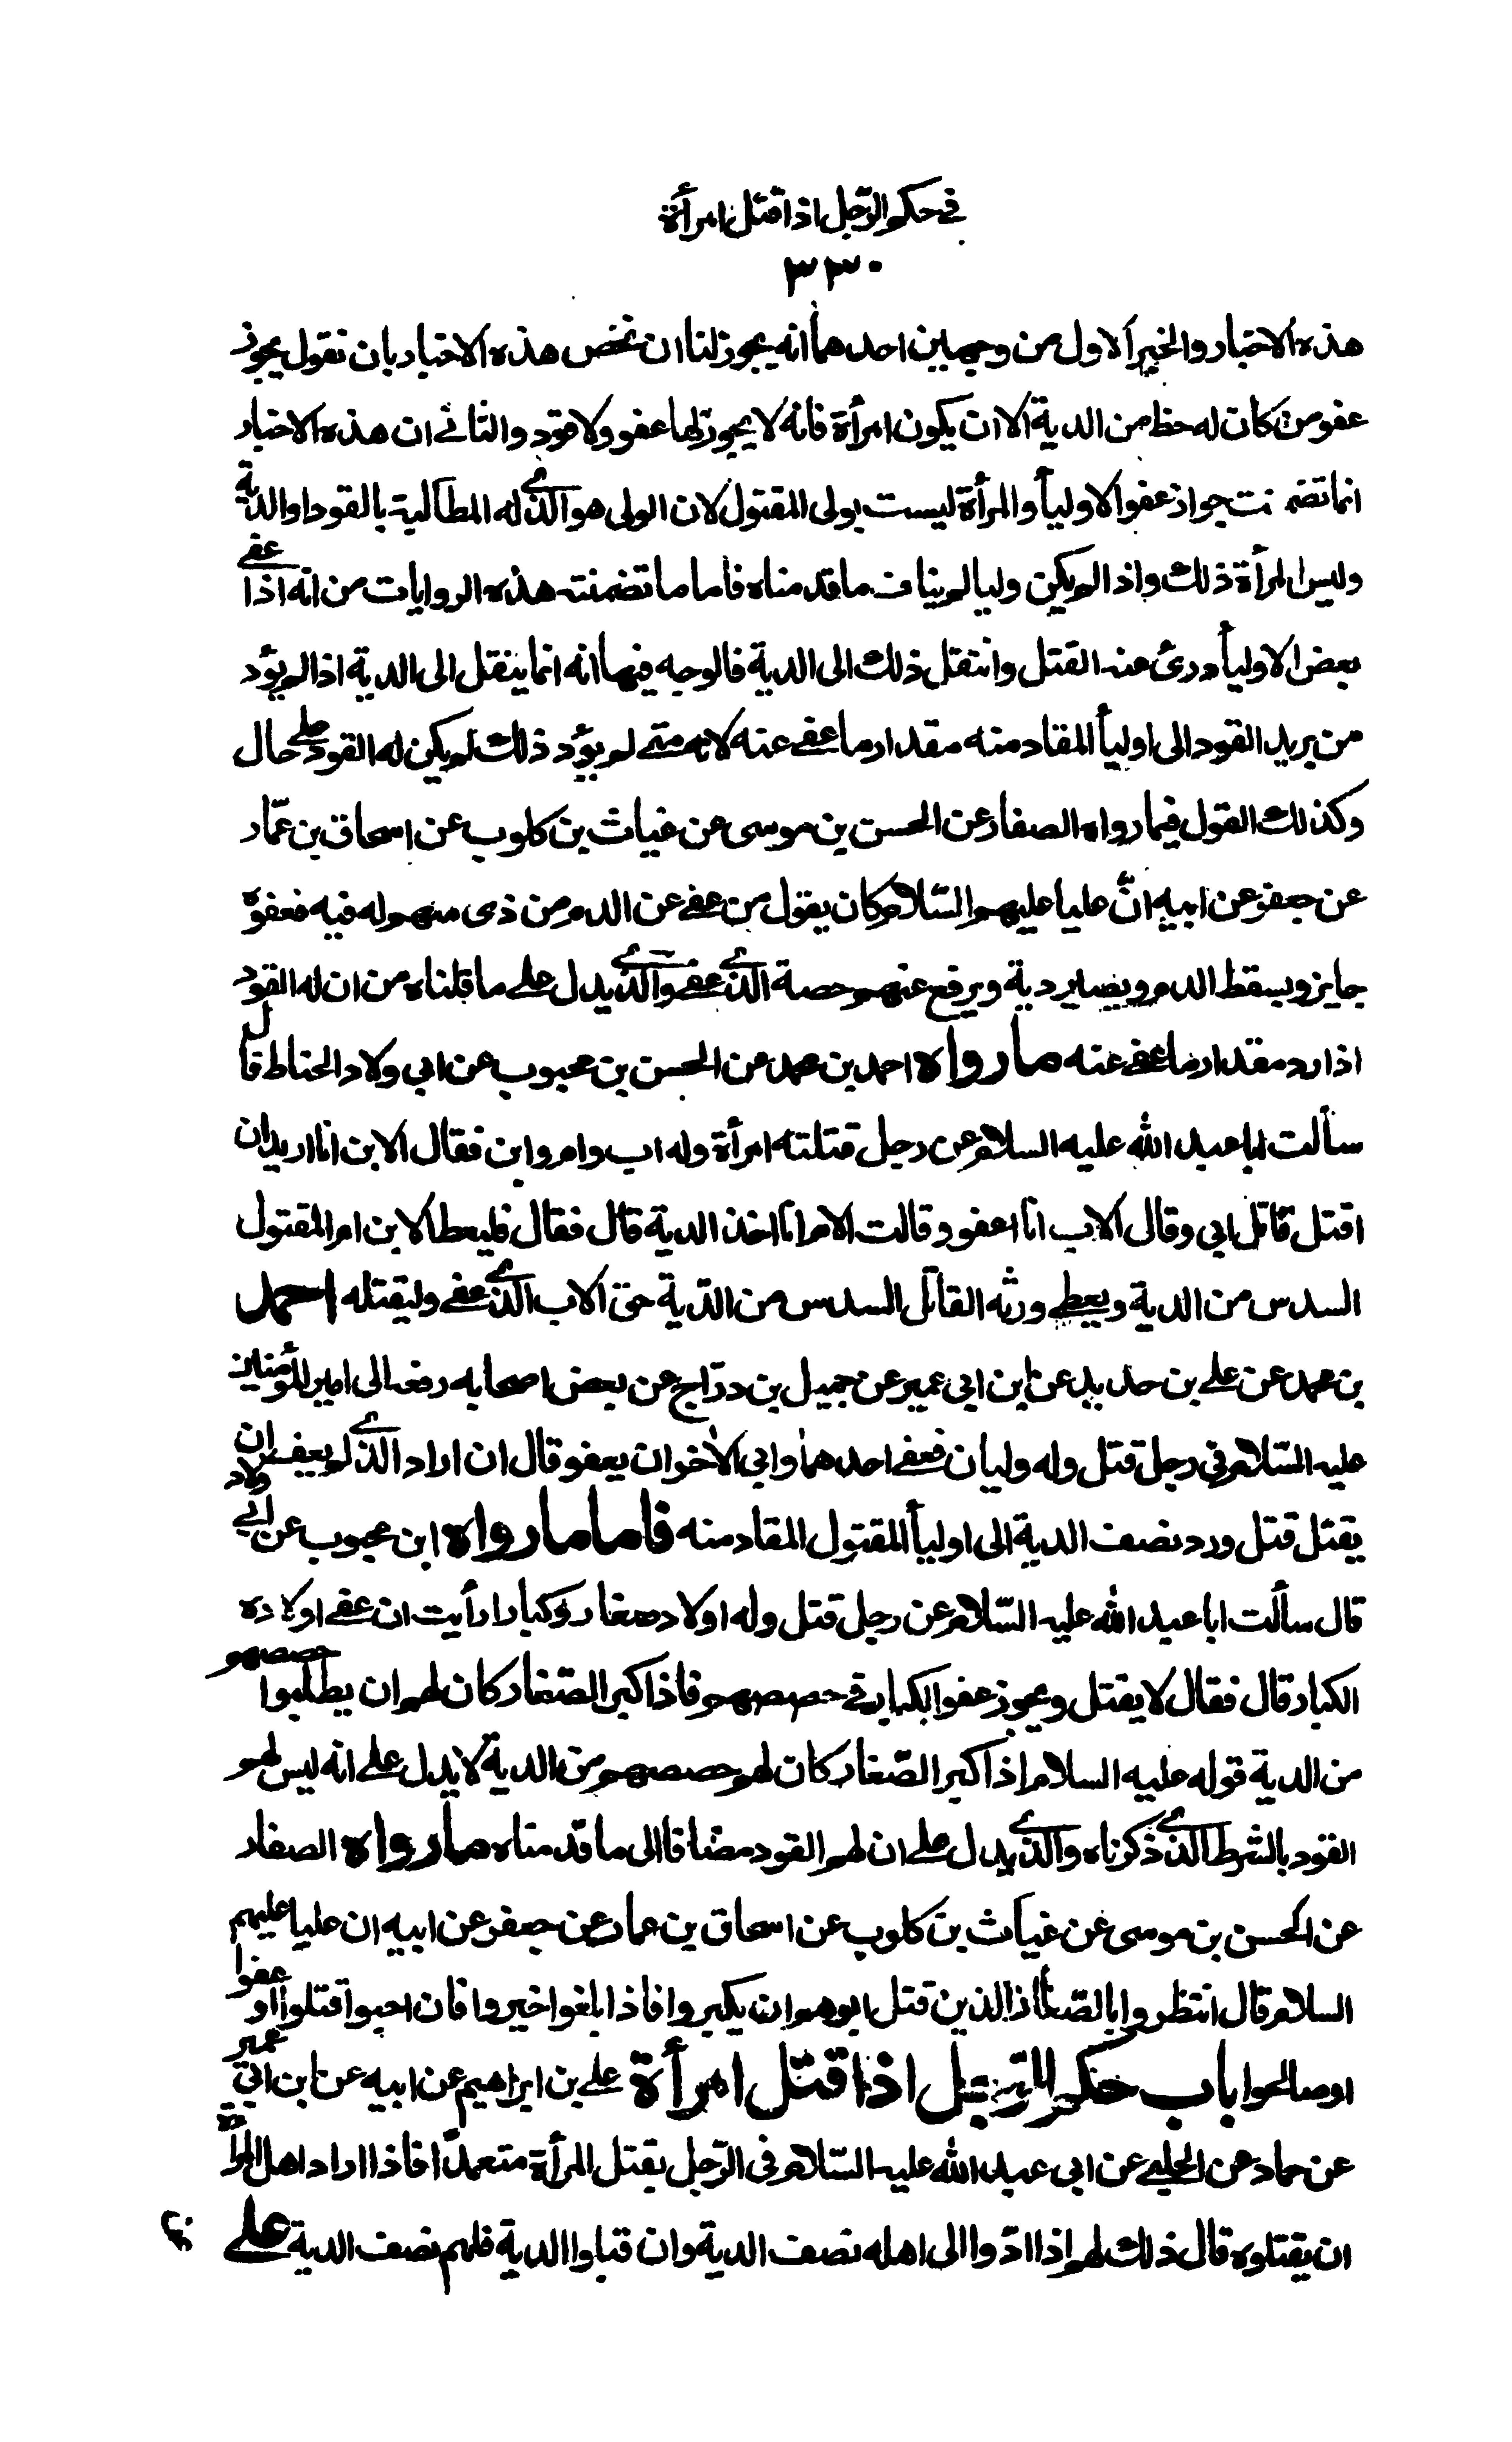 في حكم الرّجل اذا قتل امرأة
٣٣٠
هذه الاخبار والخبر الاول من وجهين احدهما انه يجوز لنا ان نخص هذه الاخبار بان نقول يجوز
عفو من كان له حظ من الدية الا ان يكون امرأة فانه لا يجوز لها عفو ولا قود والثاني ان هذه الاخبار
انما تضمنت جواز عفو الاولياء والمرأة ليست بولى المقتول لان الولى هو الذي له المطالبة بالقود او الدية
وليس للمرأة ذلك واذا لم يكن وليا لم يناف ما قدمناه فاما ما تضمنته هذه الروايات من انه اذا عفي
بعض الاولياء درئ عنه القتل وانتقل ذلك الى الدية فالوجه فيها انه انما ينقل الى الدية اذا لم يؤد
من يريد القود الى اولياء المقاد منه مقدار ما عفي عنه لانه متي لم يؤد ذلك لم يكن له القود علي حال
وكذلك القول فيما رواه الصفار عن الحسن بن موسى عن غياث بن كلوب عن اسحاق بن عمّار
عن جعفر عن ابيه انّ عليا عليهم السّلام كان يقول من عفي عن الدم من ذى سهم له فيه فعفوه
جايز ويسقط الدم ويصير دية ويرفع عنهم حصة الذي عفي والذي يدل علي ما قلناه من ان له القود
اذا رد مقدار ما عفي عنه ما رواه احمد بن محمد عن الحسن بن محبوب عن ابي ولاد الحناط قال
سألت ابا عبد الله عليه السلام عن رجل قتلته امرأة وله اب وام وابن فقال الابن انا اريد ان
اقتل قاتل ابي وقال الاب انا اعفو وقالت الام انا اخذ الدية قال فقال فليعط الابن ام المقتول
السدس من الدية ويعطي ورثه القاتل السدس من الدّية حق الاب الذي عفي وليقتله احمد
بن محمد عن علي بن حديد عن ابن ابي عمير عن جميل بن درّاج عن بعض اصحابه رفعه الى امير المؤمنين
عليه السّلام في رجل قتل وله وليان فعفي احدهما وابي الاخر ان يعفو قال ان اراد الذي لم يعف ان
يقتل قتل ورد نصف الدية الى اولياء المقتول المقاد منه فاما ما رواه ابن محبوب عن ابي ولاد
قال سألت ابا عبد الله عليه السّلام عن رجل قتل وله اولاد صغار وكبار ارأيت ان عفي اولاده
الكبار قال فقال لا يقتل ويجوز عفو الكبار في حصصهم فاذا كبر الصّغار كان لهم ان يطلبوا حصصهم
من الدية قوله عليه السلام اذا كبر الصّغار كان لهم حصصهم من الدية لا يدل علي انه ليس لهم
القود بالشرط الذي ذكرناه والذي يدل علي ان لهم القود مضافا الى ما قدمناه ما رواه الصفار
عن الحسن بن موسى عن غياث بن كلوب عن اسحاق بن عمار عن جعفر عن ابيه ان عليا عليهم
السلام قال انتظروا بالصّغار الذين قتل ابوهم ان يكبروا فاذا بلغوا خيروا فان احبوا قتلوا او عفوا
او صالحوا باب حكم الرّجل اذا قتل امرأة علي بن ابراهيم عن ابيه عن ابن ابي عمير
عن حماد عن الحلبي عن ابي عبد الله عليه السّلام في الرّجل يقتل المرأة متعمدا فاذا اراد اهل المرأة
ان يقتلوه قال ذلك لهم اذا ادّوا الى اهله نصف الدية وان قبلوا الدية فلهم نصف الدية علي